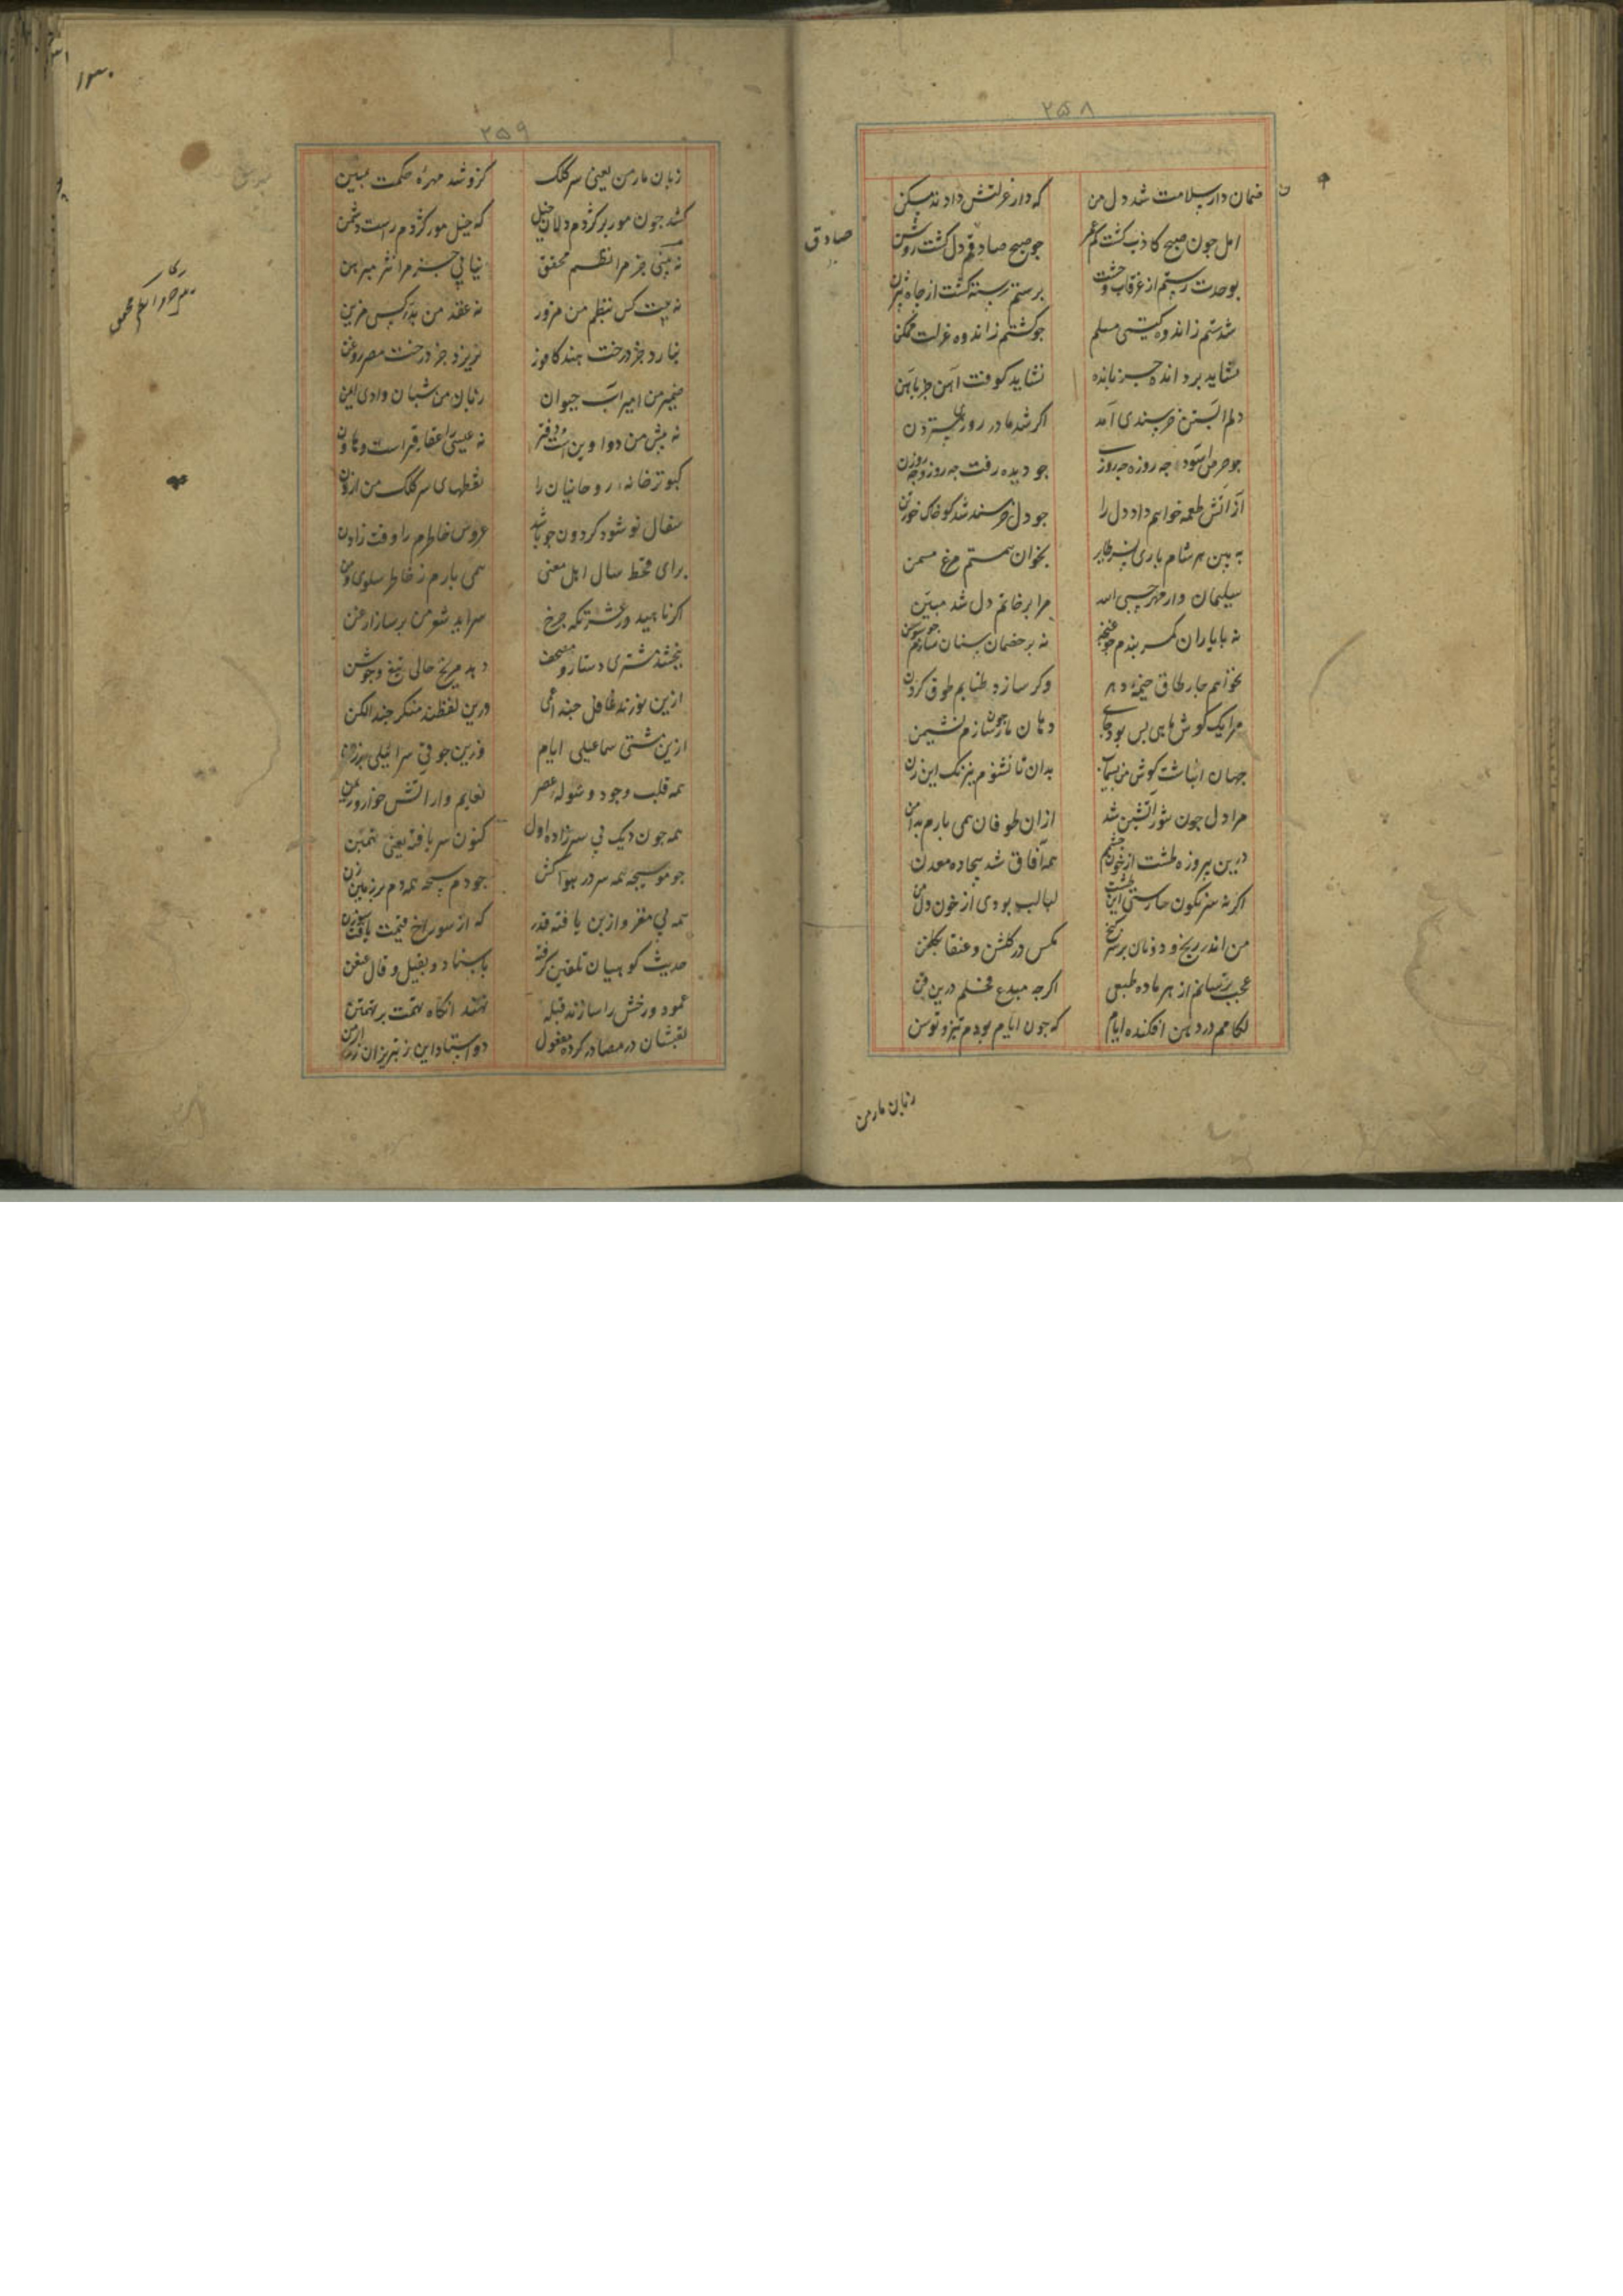 ۲۵۸
ضمان دار سلامت شد دل من که دار عزلتش دادند مسکن
امل جون صبح کاذب کشت کم عمر جو صبح صادقم دل کشت روشن
صادق
بوحدت رستم از غرقاب وحشت برستم رسته کشت از جاه بیژن
شدستم ز اندوه کیتی مسلم جو کشتم ز اندوه عزلت ممکن
نشاید برد انده جز بانده نشاید کوفت آهن جز بآهن
دلم آبستن خرسندی آمد اکر شد مادر روزی سترون
جو حرص آسود جه روزه جه روزی جو دیده رفت جه روز و جه روزن
ازآتش طعمه خواهم داد دل را جو دل خرسند شد کو خاک خور تن
به بین هر شام بخوان همتم مرغ مسمن
سلیمان وار مهر حسبی الله مرا بر خاتم دل شد مبین
نه با یاران کمر بندم جو غنجه نه بر خصمان سنان سازم جو سوسن
نخواهم جار طاق خیمه دهر وکر سازد طنابم طوق کردن
مرا یک کوش ماهی بس بود جای دهان مار جون سازم نشیمن
جهان انباشت کوش من بسیماب بدان تا نشنوم نیرنک این زن
مرا دل جون تنور آتشین شد ازان طوفان همی بارم بدامن
درین پیروزه طشت از خون جشمم همه آفاق شد بیجاده معدن
اکر نه سرنکون سارستی این طشت لبالب بودی از خون دل من
من اندر رنج و دونان بر سر کنج مکس در کلشن و عنقا بکلخن
عجب ترسانم از هر ماده طبعی اکر جه مبدع فحلم درین فن
لکامم در دهن افکنده ایام که جون ایام بودم تیز و توسن
زبان مار من
۲۵۹
زبان مار من یعنی سر کلک کزو شد مهره حکمت مبین
کشد جون مور بر کژدم دلان خیل که خیل مور کژدم راست دشمن
نه بینی جز مرا نظم محقق نیابی جز مرا نثر مبرهن
نه بیت کس نظم من مزور نه عقد من بدر کس مزین
نبارد جز درخت هند کافور نریزد جز درخت مصر روغن
ضمیر من امیر آب حیوان زبان من شبان وادی ایمن
نه پیش من دواوین است و دفتر نه عیسی را عقاقیر است و هاون
کبوترخانه روحانیان را نقطهای سر کلک من ارزن
سفال نو شود کردون جو باشد عروس خاطرم را وقت زادن
برای قحط سال اهل معنی همی بارم ز خاطر سلوی و من
اکر ناهید در عشرتکه جرخ سراید شعر من بر ساز ارغن
ببخشد مشتری دستار و مصحف دهد مریخ حالی تیغ و جوشن
ازین نورند غافل جند اعمی درین لفظند منکر جند الکن
ازین مشتی سماعیلی ایام وزین جوقی سرائیلی برزن
همه قلب وجود و شوله عصر نعایم وار آتش خوار و ریمن
همه جون دیک بی سر زاده اول کنون سر یافته یعنی نهنبن
جو موسیجه همه سر در هوا کش جو دم سیجه همه دم بر زمین زن
همه بی مغز و ازبن یافته قدر که از سوراخ قیمت یافت سوزن
حدیث کوهیان تلقین کرفته باسناد و بقیل و قال عنعن
عمود و رخش را سازند قبله نهند انکاه تهمت بر تهمتن
لقبشان در مصادر کرده مفعول دو استاد این ز تبریز ان ز زوزن
۱۳۰